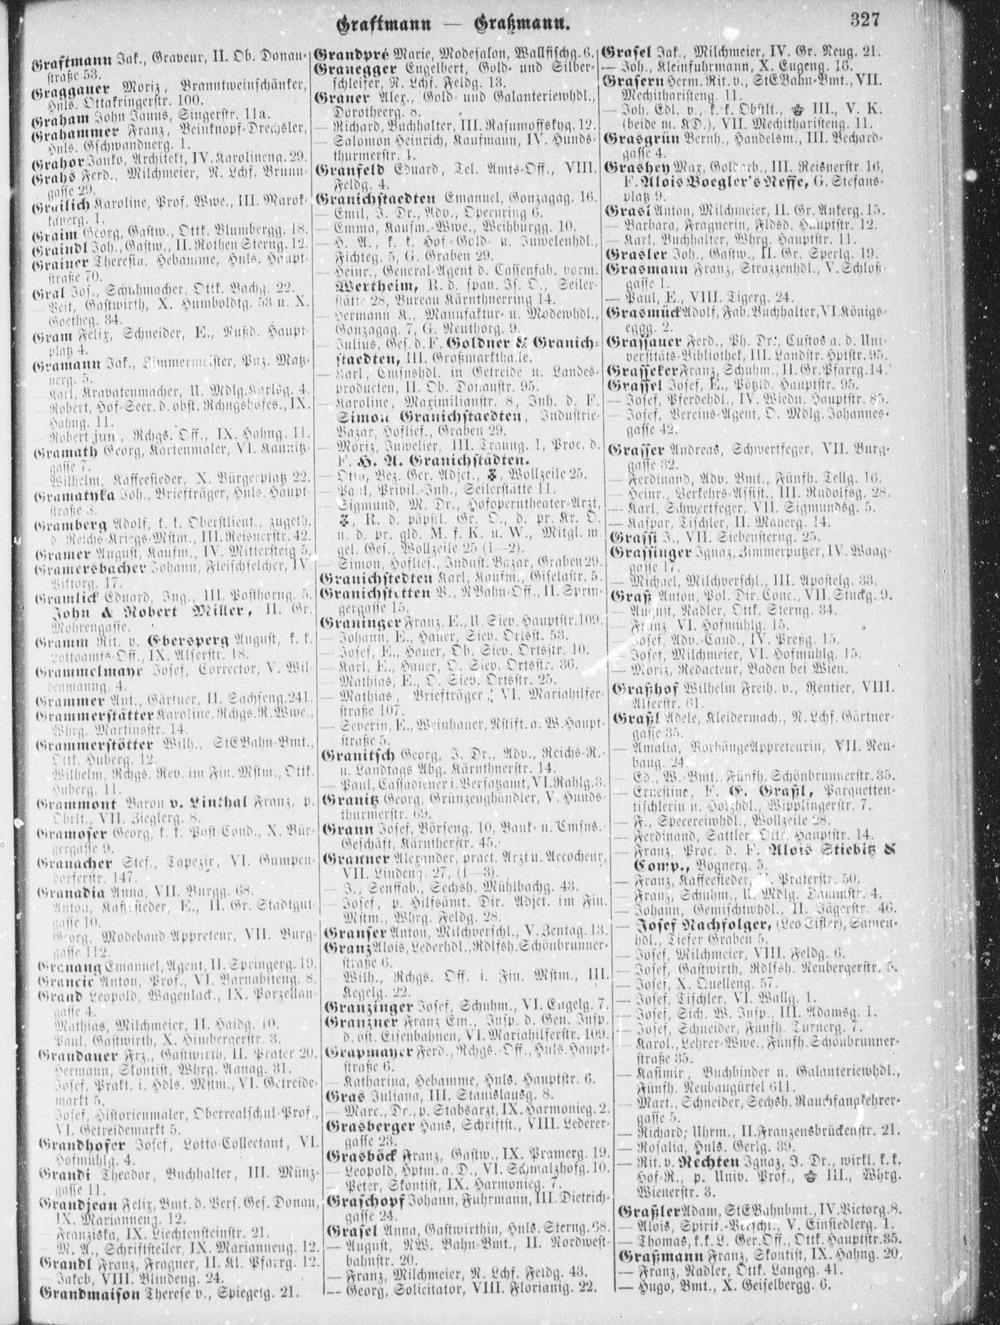 Graftmann — Graßmann.
327
Graftmann Jak., Graveur, II. Ob. Donau-
straße 53.
Graggauer Moriz, Branntweinschänker,
Hnls. Ottakringerstr. 100.
Graham John Janus, Singerstr. 11a.
Grahammer Franz, Beinknopf-Drechsler,
Hnls. Gschwandnerg. 1.
Grahor Janko, Architekt, IV. Karolineng. 29.
Grahs Ferd., Milchmeier, N. Lchf. Brunn-
gasse 29.
Grailich Karoline, Prof. Wwe., III. Marok-
kanerg. 1.
Graim Georg, Gastw., Ottk. Blumbergg. 18.
Graindl Joh., Gastw., II. Rothen Sterng. 12.
Grainer Theresia, Hebamme, Hnls. Haupt-
straße 70.
Gral Jos., Schuhmacher, Ottk. Bachg. 22.
— Veit, Gastwirth, X. Humboldtg. 53 u. X.
Goetheg. 34.
Gram Felix, Schneider, E., Nußd. Haupt-
platz 4.
Gramann Jak., Zimmermeister, Pnz. Matz-
nerg. 5.
Karl, Kravatenmacher, U. Mdlg. Karlsg. 4.
Robert, Hof-Secr. d. obst. Rchngshofes, IX.
Hahng. 11.
— Robert jun., Rchgs. Off., IX. Hahng. 11.
Gramath Georg, Kartenmaler, VI. Kaunitz-
gasse 7.
Wilhelm, Kaffeesieder, X. Bürgerplatz 22.
Gramatyka Joh., Briefträger, Hnls. Haupt-
straße 3.
Gramberg Adolf, k. k. Oberstlieut., zugeth.
d. Reichs-Kriegs-Mstm., III. Reisnerstr. 42.
Gramer August, Kaufm., IV. Mittersteig 5.
Gramersbacher Johann, Fleischselcher, IV.
Vittorg. 17.
Gramlick Eduard, Ing., III. Posthorng. 5.
John & Robert Miller, II. Gr.
Mohrengasse.
Gramm Rit. v. Ebersperg August, k. k.
Lottoamts-Off., IX. Alserstr. 18.
Grammelmayr Josef, Corrector, V. Wil-
denmanng. 4.
Grammer Ant., Gärtner, II. Sachseng. 241.
Grammerstätter Karoline, Rchgs. R. Wwe.,
Whrg. Martinsstr. 14.
Grammerstötter Wilh., StEBahn-Bmt.,
Ottk. Huberg. 12.
Wilhelm, Rchgs. Rev. im Fin. Mstm., Ottk.
Huberg. 11.
Grammont Baron v. Linthal Franz, p.
Obrlt., VII. Zieglerg. 8.
Gramoser Georg, k. k. Post-Cond., X. Bür-
gergasse 9.
Granacher Stef., Tapezir, VI. Gumpen-
dorferstr. 147.
Granadia Anna, VII. Burgg. 68.
Anton, Kaffesieder, E., II. Gr. Stadtgut-
gasse 10.
Georg, Modeband-Appreteur, VII. Burg-
gasse 112.
Granang Emanuel, Agent, II. Springerg. 19.
Grancic Anton, Prof., VI. Barnabiteng. 8.
Grand Leopold, Wagenlack., IX. Porzellan-
gasse 4.
Mathias, Milchmeier, II. Haidg. 10.
Paul, Gastwirth, X. Himbergerstr. 3.
Grandauer Frz., Gastwirth, II. Prater 20.
— Hermann, Skontist, Whrg. Annag. 31.
— Josef, Prakt. i. Hdls. Mstm., VI. Getreide-
markt 5.
Josef, Historienmaler, Oberrealschul-Prof.,
VI. Getreidemarkt 5.
Grandhofer Josef, Lotto-Collectant, VI.
Hofmühlg. 4.
Grandi Theodor, Buchhalter, III. Münz-
gasse 11.
Grandjean Felix, Bmt. d. Vers. Ges. Donau,
IX. Marianneng. 12.
— Franziska, IX. Liechtensteinstr. 21.
— M. A., Schriftsteller, IX. Marianneng. 12.
Grandl Franz, Fragner, II. Kl. Pfarrg. 12.
— Jakob, VIII. Blindeng. 24.
Grandmaison Therese v., Spiegelg. 21.
Grandpré Marie, Modesalon, Wallfischg. 6.
Granegger Engelbert, Gold- und Silber-
schleifer, N. Lchf. Feldg. 13.
Graner Alex., Gold- und Galanteriewhdl.,
Dorotheerg. 8.
— Richard, Buchhalter, III. Rasumoffskyg. 12.
— Salomon Heinrich, Kaufmann, IV. Hunds-
thurmerstr. 4.
Granfeld Eduard, Tel. Amts-Off., VIII.
Feldg. 4.
Granichstaedten Emanuel, Gonzagag. 16.
— Emil, J. Dr., Adv., Opernring 6.
— Emma, Kaufm.-Wwe., Weihburgg. 10.
— H. A., k. k. Hof-Gold- u. Juwelenhdl.,
Fichteg. 5, G. Graben 29.
— Heinr., General-Agent d. Cassenfab. vorm.
Wertheim, R. d. span. Js. O., Seiler-
stätte 28, Bureau Kärnthnerring 14.
— Hermann K., Manufaktur- u. Modewhdl.,
Gonzagag. 7, G. Neuthorg. 9.
— Julius, Ges. d. F. Goldner & Granich-
staedten, III. Großmarkthalle.
— Karl, Emsnshdl. in Getreide u. Landes-
producten, II. Ob. Donaustr. 95.
— Karoline, Maximilianstr. 8, Inh. d. F.
Simon Granichstaedten, Industrie-
Bazar, Hoflief., Graben 29.
— Moriz, Juwelier, III. Traung. 1, Proc. d.
F. H. A. Granichstädten.
— Otto, Bez. Ger. Adjct., Wollzeile 25.
— Paul, Privil.-Inh., Seilerstätte 11.
— Sigmund, M. Dr., Hofoperntheater-Arzt,
R. d. päpstl. Gr. O., d. pr. Kr. O.
u. d. pr. gld. M. f. K. u. W., Mitgl. m.
gel. Ges., Wollzeile 25 (1—2).
— Simon, Hoflief., Industr. Bazar, Graben 29.
Granichstedten Karl, Kaufm., Giselastr. 5.
Granichstetten V., NBahn-Off., II. Sprin-
gergasse 15.
Graninger Franz, E., U. Siev. Hauptstr. 109.
— Johann, E., Hauer, Siev. Ortsst. 53.
— Josef, E., Hauer, Ob. Siev. Ortsstr. 10.
— Karl, E., Hauer, O. Siev. Ortsstr. 36.
— Mathias, E., O. Siev. Ortsstr. 25.
— Mathias, Briefträger, VI. Mariahilfer-
straße 107.
— Severin, E., Weinhauer, Nstift a. W. Haupt-
straße 5.
Granitsch Georg, J. Dr., Adv., Reichs-R.-
u. Landtags Abg. Kärnthnerstr. 14.
— Paul, Cassadiener i. Versatzamt, VI. Rahlg. 3.
Granitz Georg, Grünzeughändler, V. Hunds-
thurmerstr. 69.
Grann Josef, Börseng. 10, Bank- u. Emsns.-
Geschäft, Kärntherstr. 45.
Granner Alexander, pract. Arzt u. Accocheur,
VII. Lindeng. 27, (1—3).
— J., Senffab., Sechsh. Mühlbachg. 43.
— Josef, p. Hilfsämt. Dir. Adjct. im Fin.
Mstm., Whrg. Feldg. 28.
Granser Anton, Milchverschl., V. Zentag. 13.
Granz Alois, Lederhdl., Rdlfsh. Schönbrunner-
straße 6.
— Wilh., Rchgs. Off. i. Fin. Mstm., III.
Kegelg. 22.
Granzinger Josef, Schuhm., VI. Engelg. 7.
Granzner Franz Em., Insp. d. Gen. Insp.
d. öst. Eisenbahnen, VI. Mariahilferstr. 109.
Grapmayer Ferd., Rchgs.-Off., Hnls. Haupt-
straße 6.
— Katharina, Hebamme, Hnls. Hauptstr. 6.
Gras Juliana, III. Stanislausg. 8.
— Marc., Dr., p. Stabsarzt, IX. Harmonieg. 2.
Grasberger Hans, Schriftst., VIII. Lederer-
gasse 23.
Grasböck Franz, Gastw., IX. Pramerg. 19.
— Leopold, Hptm. a. D., VI. Schmalzhofg. 10.
— Peter, Skontist, IX. Harmonieg. 7.
Graschopf Johann, Fuhrmann, III. Dietrich-
gasse 24.
Grasel Anna, Gastwirthin, Hnls. Sterng. 68.
— August, NW. Bahn-Bmt., II. Nordwest-
bahnstr. 20.
— Franz, Milchmeier, N. Lchf. Feldg. 43.
— Georg, Solicitator, VIII. Florianig. 22.
Grasel Jak., Milchmeier, IV. Gr. Neug. 21.
— Joh., Kleinfuhrmann, X. Eugeng. 16.
Grasern Herm. Rit. v., StEBahn-Bmt., VII.
Mechitharisteng. 11.
— Joh. Edl. v., k. k. Obstlt., III., V. K.
(beide m. KD.), VII. Mechitharisteng. 11.
Grasgrün Bernh., Handelsm., III. Bechard-
gasse 4.
Grashey Max, Goldarb., III. Reisnerstr. 16,
F. Alois Voegler's Neffe, G. Stefans-
platz 9.
Grasi Anton, Milchmeier, II. Gr. Ankerg. 15.
— Barbara, Fragnerin, Fldsd. Hauptstr. 12.
— Karl, Buchhalter, Whrg. Hauptstr. 11.
Grasler Joh., Gastw., II. Gr. Sperlg. 19.
Grasmann Franz, Strazzenhdl., V. Schloß-
gasse 1.
— Paul, E., VIII. Tigerg. 24.
Grasmück Adolf, Fab. Buchhalter, VI. Königs-
egg. 2.
Grassauer Ferd., Ph. Dr., Custos a. d. Uni-
versitäts-Bibliothek, III. Landstr. Hptstr. 95.
Grasseker Franz, Schuhm., II. Gr. Pfarrg. 14.
Grassel Josef, E., Pötzld. Hauptstr. 95.
— Josef, Pferdehdl., IV. Wiedn. Hauptstr. 85.
— Josef, Vereins-Agent, O. Mdlg. Johannes-
gasse 42.
Grasser Andreas, Schwertfeger, VII. Burg-
gasse 32.
— Ferdinand, Adv. Bmt., Fünfh. Tellg. 16.
— Heinr., Verkehrs-Assist., III. Rudolfsg. 28.
— Karl, Schwertfeger, VII. Sigmundsg. 5.
— Kaspar, Tischler, II. Mayerg. 14.
Grassi J., VII. Siebensterng. 25.
Grassinger Ignaz, Zimmerputzer, IV. Waag-
gasse 17.
— Michael, Milchverschl., III. Apostelg. 33.
Graß Anton, Pol. Dir. Conc., VII. Stuckg. 9.
— August, Nadler, Ottk. Sterng. 34.
— Franz VI. Hofmühlg. 15.
— Josef, Adv.-Cand., IV. Preßg. 15.
— Josef, Milchmeier, VI. Hofmühlg. 15.
— Moriz, Redacteur, Baden bei Wien.
Graßhof Wilhelm Freih. v., Rentier, VIII.
Alserstr. 61.
Graßl Adele, Kleidermach., N. Lchf. Gärtner-
gasse 35.
— Amalia, Vorhänge-Appreteurin, VII. Neu-
baug. 24.
— Ed., W.-Bmt., Fünfh. Schönbrunnerstr. 35.
— Ernestine, F. E. Graßl, Parquetten-
tischlerin u. Holzhdl., Wipplingerstr. 7.
— F., Specereiwhdl., Wollzeile 28.
— Ferdinand, Sattler, Ottk. Hauptstr. 14.
— Franz, Proc. d. F. Alois Stiebitz &
Comp., Bognerg. 5.
— Franz, Kaffeesieder, Praterstr. 50.
— Franz, Schuhm., U. Mdlg. Dammstr. 4.
— Johann, Gemischtwhdl., II. Jägerstr. 46.
— Josef Nachfolger, (Leo Eisler), Samen-
hdl., Tiefer Graben 5.
— Josef, Milchmeier, VIII. Feldg. 6.
— Josef, Gastwirth, Rdlfsh. Neubergerstr. 5.
— Josef, X. Quelleng. 57.
— Josef, Tischler, VI. Wallg. 1.
— Josef, Sich. W. Insp., III. Adamsg. 1.
— Josef, Schneider, Fünfh. Turnerg. 7.
— Karol., Lehrer-Wwe., Fünfh. Schönbrunner-
straße 35.
— Kasimir, Buchbinder u. Galanteriewhdl.,
Fünfh. Neubaugürtel 611.
— Mart., Schneider, Sechsh. Rauchfangkehrer-
gasse 5.
— Richard, Uhrm., II. Franzensbrückenstr. 21.
— Rosalia, Hnls. Gerlg. 39.
— Rit. v. Rechten Ignaz, J. Dr., wirkl. k. k.
Hof-R., p. Univ. Prof., III., Whrg.
Wienerstr. 3.
Graßler Adam, StEBahnbmt., IV. Victorg. 8.
— Alois, Spirit.-Verschl., V. Einsiedlerg. 1.
— Thomas, k. k. L. Ger. Off., Ottk. Hauptstr. 35.
Graßmann Franz, Skontist, IX. Hahng. 20.
— Franz, Nadler, Ottk. Langeg. 41.
— Hugo, Bmt., X. Geiselbergg. 6.